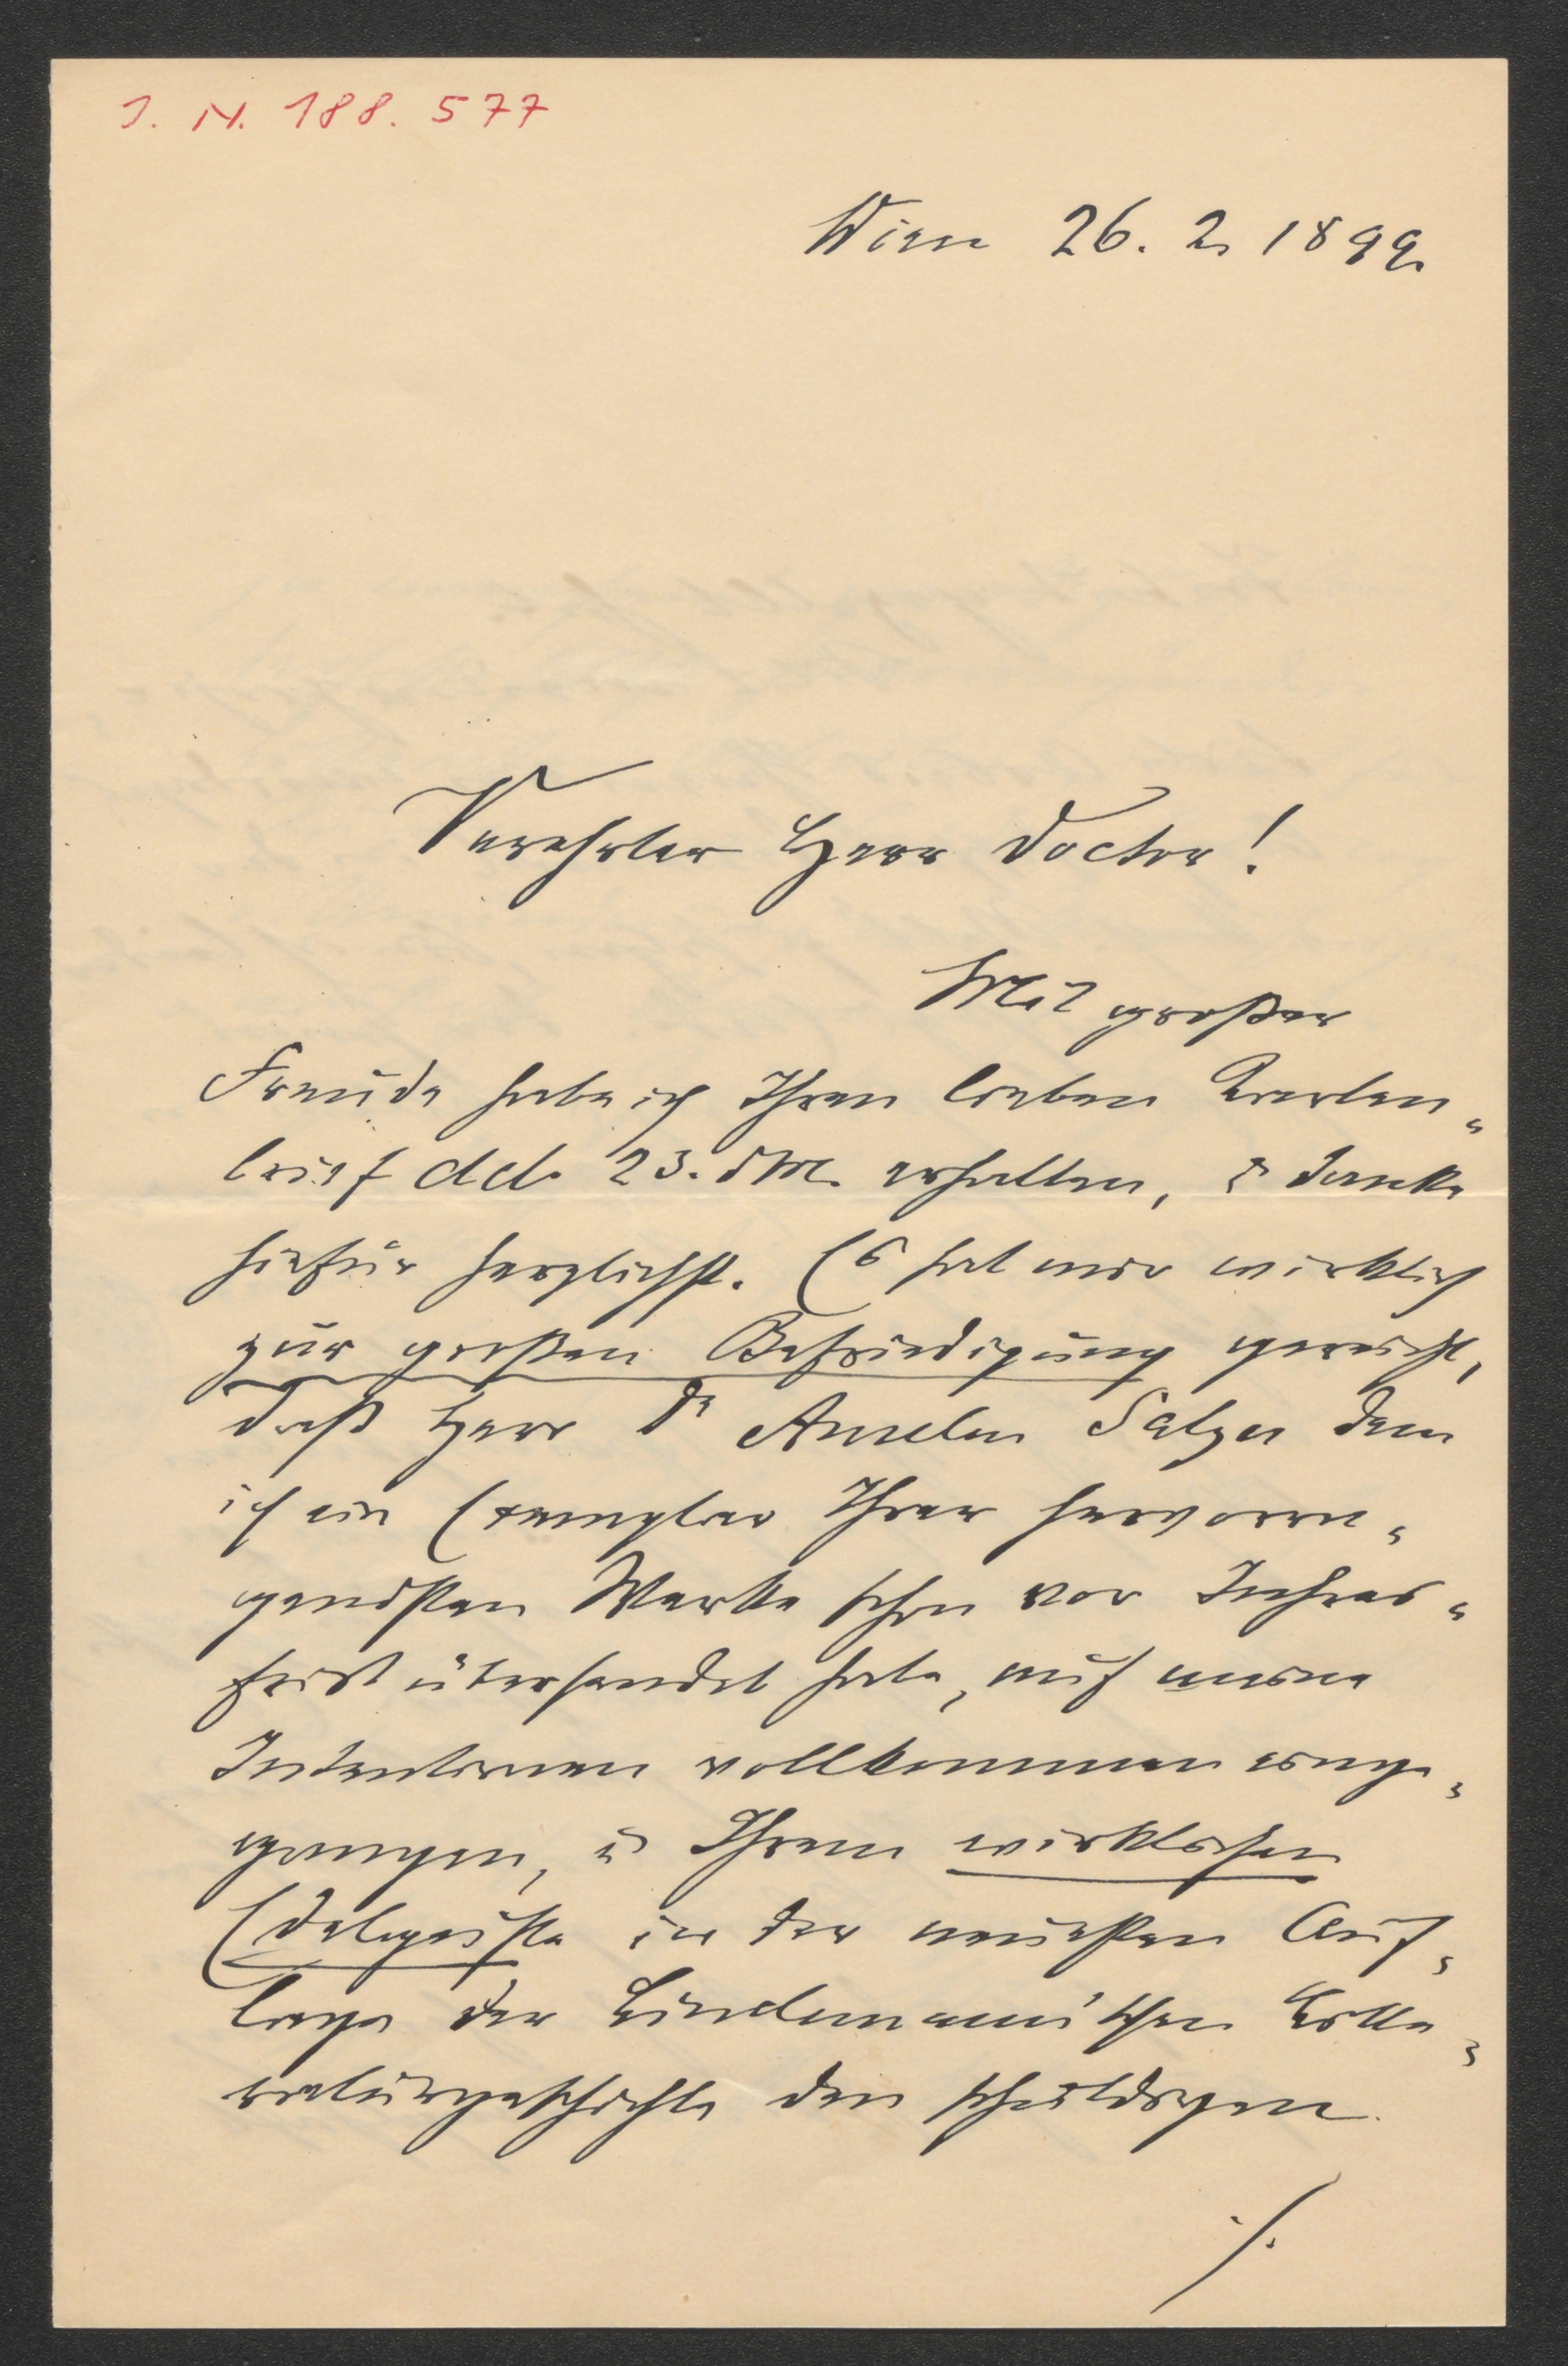 J. N. 188.577
Wien 26. 2. 1899.
Verehrter Herr Doctor!
Mit großer
Freude habe ich Ihren lieben Karten-
brief ddo 23. d M. erhalten, u danke
hiefür herzlichst. Es hat mir wirklich
zur großen Befriedigung gereicht,
daß Herr Dr Anselm Salzer dem
ich ein Exemplar Ihrer hervorra-
gendsten Werke schon vor Jahres-
frist übersendet habe, auf meine
Intentionen vollkommen einge-
gangen, u Ihrem wirklichen
Edelgeiste in der neuesten Auf-
lage der Lindemann'schen Litte-
raturgeschichte den schuldigen
./.